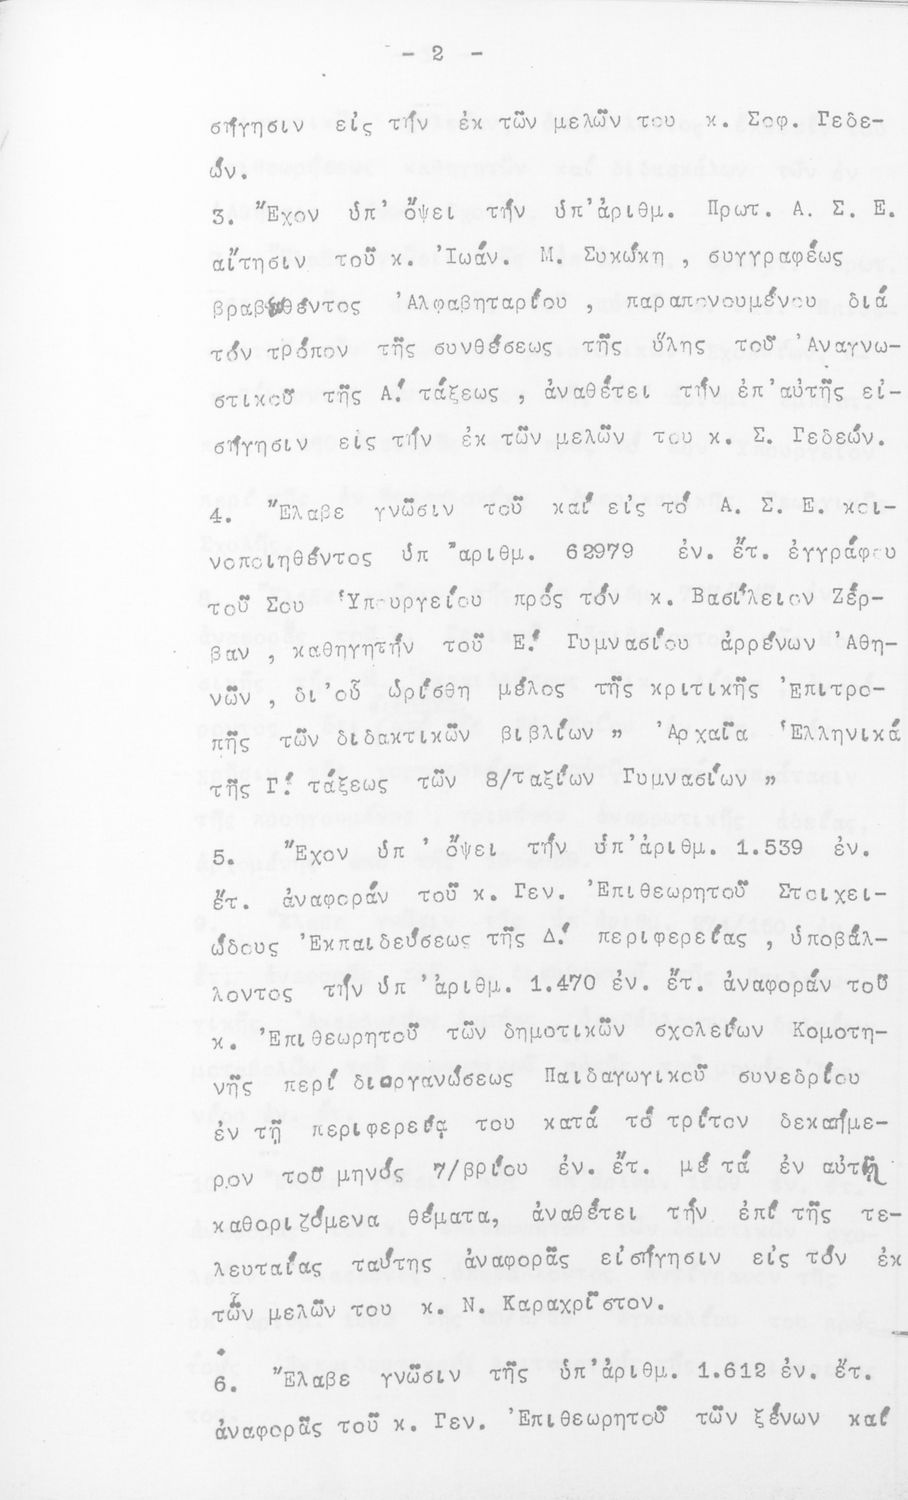 - 2 -
σήγησιν εἰς τήν ἐκ τῶν μελῶν του κ. Σοφ. Γεδε-
ών.
3. Ἔχον ὑπ' ὄψει τήν ὑπ'ἀριθμ. Πρωτ. Α. Σ. Ε.
αἴτησιν τοῦ κ. Ἰωάν. Μ. Συκώκη , συγγραφέως
βραβευθέντος Ἀλφαβηταρίου , παραπονουμένου διά
τόν τρόπον τῆς συνθέσεως τῆς ὕλης τοῦ Ἀναγνω-
στικοῦ τῆς Α΄. τάξεως , ἀναθέτει τήν ἐπ'αὐτῆς εἰ-
σήγησιν εἰς τήν ἐκ τῶν μελῶν του κ. Σ. Γεδεών.
4. Ἔλαβε γνῶσιν τοῦ καί εἰς τό Α. Σ. Ε. κοι-
νοποιηθέντος ὑπ 'αριθμ. 62979 ἐν. ἔτ. ἐγγράφου
τοῦ Σου Ὑπουργείου πρός τόν κ. Βασίλειον Ζέρ-
βαν , καθηγητήν τοῦ Ε΄. Γυμνασίου ἀρρένων Ἀθη-
νῶν , δι'οὗ ὡρίσθη μέλος τῆς κριτικῆς Ἐπιτρο-
πῆς τῶν διδακτικῶν βιβλίων " Ἀρχαῖα Ἑλληνικά
τῆς Γ΄. τάξεως τῶν 8/ταξίων Γυμνασίων "
5. Ἔχον ὑπ ' ὄψει τήν ὑπ'ἀριθμ. 1.539 ἐν.
ἔτ. ἀναφοράν τοῦ κ. Γεν. Ἐπιθεωρητοῦ Στοιχει-
ώδους Ἐκπαιδεύσεως τῆς Δ΄. περιφερείας , ὑποβάλ-
λοντος τήν ὑπ 'ἀριθμ. 1.470 ἐν. ἔτ. ἀναφοράν τοῦ
κ. Ἐπιθεωρητοῦ τῶν δημοτικῶν σχολείων Κομοτη-
νῆς περί διοργανώσεως Παιδαγωγικοῦ συνεδρίου
ἐν τῇ περιφερείᾳ του κατά τό τρίτον δεκαήμε-
ρον τοῦ μηνός 7/βρίου ἐν. ἔτ. μέ τά ἐν αὐτῇ
καθοριζόμενα θέματα, ἀναθέτει τήν ἐπί τῆς τε-
λευταίας ταύτης ἀναφορᾶς εἰσήγησιν εἰς τόν ἐκ
τῶν μελῶν του κ. Ν. Καραχρῖστον.
6. Ἔλαβε γνῶσιν τῆς ὑπ'ἀριθμ. 1.612 ἐν. ἔτ.
ἀναφορᾶς τοῦ κ. Γεν. Ἐπιθεωρητοῦ τῶν ξένων καί